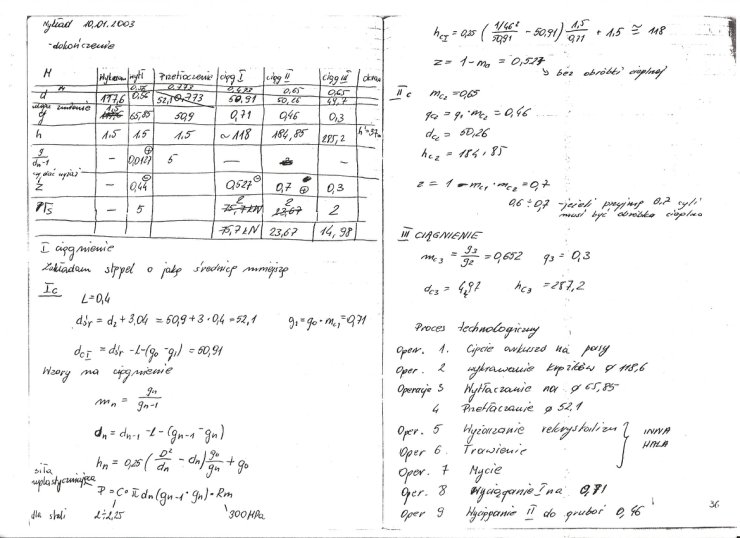 Wykład 10.01.2003
- dokończenie
M Wykrawan wytł Przetłaczenie ciąg I ciąg II ciąg III
m 0,56 0,773 0,65 0,65
d 117,6 52,1 50,91 50,26 49,7
g 1,5 65,85 50,9 0,71 0,46 0,3
h 1,5 1,5 1,5 ~118 184,85 285,2
g/dn-1 - 0,0127 5 -
z - 0,44 0,527 0,7 0,3
- 5 2 2 2
75,7 kN 23,67 14,98
I ciągnienie
Zakładam stępel o jaką średnicę mniejszą
Ic
L=0,4
dśr = d2 + 3,04 = 50,9 + 3·0,4 = 52,1 g1 = g0·mc1 = 0,71
dcI = dśr - L - (g0 - g1) = 50,91
Wzory na ciągnienie
mn = gn/gn-1
dn = dn-1 - L - (gn-1 - gn)
hn = 0,25 (D²/dn - dn) g0/gn + g0
siła uplastyczniająca
P = C·π dn (gn-1 - gn)·Rm
dla stali 2÷2,25 300 MPa
hcI = 0,25 (1/46²/50,91 - 50,91) 1,5/0,71 + 1,5 ≅ 118
z = 1 - mn = 0,527
bez obróbki cieplnej
II c mc2 = 0,65
gc2 = g1·mc2 = 0,46
dc2 = 50,26
hc2 = 184,85
z = 1 - mc1·mc2 = 0,7
0,6÷0,7 - jeżeli przyjmę 0,7 czyli
musi być obróbka cieplna
III CIĄGNIENIE
mc3 = g3/g2 = 0,652 g3 = 0,3
dc3 = 4,97 hc3 = 287,2
Proces technologiczny
Oper. 1. Cięcie arkusza na pasy
Oper. 2 wykrawanie krążków ø 118,6
Operacja 3 Wytłaczanie na ø 65,85
4 Przetłaczanie ø 52,1
Oper. 5 Wyżarzanie rekrystaliz INNA
Oper 6. Trawienie HALA
Oper. 7 Mycie
Oper. 8 Wyciąganie I na 0,71
Oper 9 Wyciąganie II do grubość 0,46
36